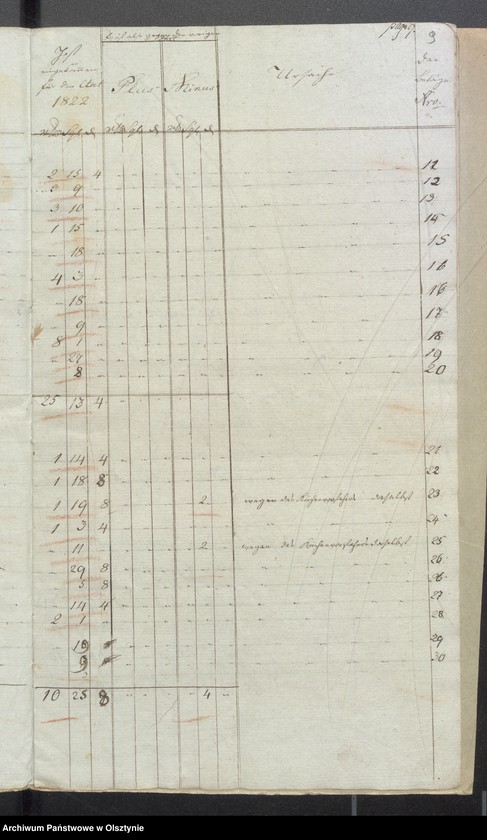 pag. 9.
Jetzt
für den Etat
1822
Plus
Minus
Ursache
der
Nro
2 15 4 - - - - - - 12
3 9 - - - - - - 12
3 10 - - - - - - 13
1 15 - - - - - - 14
- 18 - - - - - - 15
4 3 - - - - - - 16
- 18 - - - - - - 16
- 9 - - - - - - 17
8 1 - - - - - - 18
- 29 - - - - - - 19
- 8 - - - - - - 20
25 13 4
1 14 4 - - - - - - 21
1 18 8 - - - - - - 22
1 19 8 - - - - 2 - wegen des daselbst 23
1 3 4 - - - - - - 24
- 11 - - - - - 2 - wegen des daselbst 25
- 29 8 - - - - - - 26
- 5 8 - - - - - - 26
- 14 4 - - - - - - 27
2 1 - - - - - - 28
- 19 - - - - - - 29
- 9 - - - - - - 30
10 25 8 - - - - 4 -
Archiwum Państwowe w Olsztynie